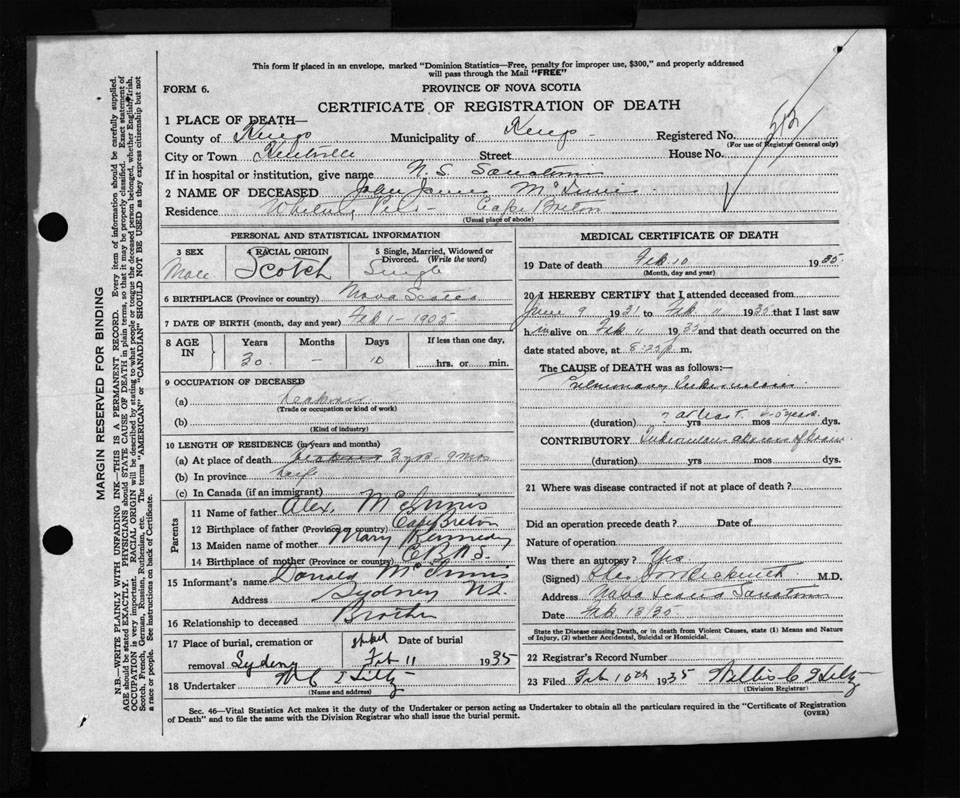 This form if placed in an envelope, marked "Dominion Statistics—Free, penalty for improper use, $300," and properly addressed
will pass through the Mail "FREE"
FORM 6.
PROVINCE OF NOVA SCOTIA
CERTIFICATE OF REGISTRATION OF DEATH
1 PLACE OF DEATH—
County of Kings Municipality of Kings Registered No.
(For use of Registrar General only)
City or Town Kentville Street House No.
If in hospital or institution, give name N. S. Sanatorium
2 NAME OF DECEASED John James McInnis
Residence Cape Breton
(Usual place of abode)
PERSONAL AND STATISTICAL INFORMATION
3 SEX Male
4 RACIAL ORIGIN Scotch
5 Single, Married, Widowed or Divorced. (Write the word) Single
6 BIRTHPLACE (Province or country) Nova Scotia
7 DATE OF BIRTH (month, day and year) Feb 1 - 1905
8 AGE IN Years Months Days If less than one day,
30 – 10 hrs. or min.
9 OCCUPATION OF DECEASED
(a)
(Trade or occupation or kind of work)
(b)
(Kind of industry)
10 LENGTH OF RESIDENCE (in years and months)
(a) At place of death 3 yrs - 9 mos
(b) In province life
(c) In Canada (if an immigrant)
Parents
11 Name of father Alex. McInnis
12 Birthplace of father (Province or country) Cape Breton
13 Maiden name of mother Mary Kennedy
14 Birthplace of mother (Province or country) C.B. N.S.
15 Informant's name Donald McInnis
Address Sydney N.S.
16 Relationship to deceased Brother
17 Place of burial, cremation or removal Sydney Date of burial Feb 11 1935
18 Undertaker W C Hiltz
(Name and address)
MEDICAL CERTIFICATE OF DEATH
19 Date of death Feb 10 1935.
(Month, day and year)
20 I HEREBY CERTIFY that I attended deceased from
June 9 1931 to Feb 11 1935 that I last saw
h im alive on Feb 11 1935 and that death occurred on the
date stated above, at m.
The CAUSE of DEATH was as follows:
Pulmonary Tuberculosis
(duration) ? at least years. yrs mos dys.
CONTRIBUTORY Tuberculous abscess of brain
(duration) yrs mos dys.
21 Where was disease contracted if not at place of death?
Did an operation precede death? Date of
Nature of operation
Was there an autopsy? Yes
(Signed) M.D.
Address Nova Scotia Sanatorium
Date Feb 13/35
State the Disease causing Death, or in death from Violent Causes, state (1) Means and Nature
of Injury, (2) whether Accidental, Suicidal or Homicidal.
22 Registrar's Record Number
23 Filed Feb 10th 1935 Willis C Hiltz
(Division Registrar)
Sec. 46—Vital Statistics Act makes it the duty of the Undertaker or person acting as Undertaker to obtain all the particulars required in the "Certificate of Registration
of Death" and to file the same with the Division Registrar who shall issue the burial permit.
(OVER)
MARGIN RESERVED FOR BINDING
N.B.—WRITE PLAINLY, WITH UNFADING INK—THIS IS A PERMANENT RECORD. Every item of information should be carefully supplied.
AGE should be stated EXACTLY. PHYSICIANS should STATE CAUSE OF DEATH in plain terms, so that it may be properly classified. Exact statement of
OCCUPATION is very important. RACIAL ORIGIN will be described by stating to what people or tongue the deceased person belonged, whether English, Irish,
Scotch, French, German, Russian, Ruthenian, etc. The terms "AMERICAN" or "CANADIAN" SHOULD NOT BE USED as they express citizenship but not
a race or people. See instructions on back of Certificate.